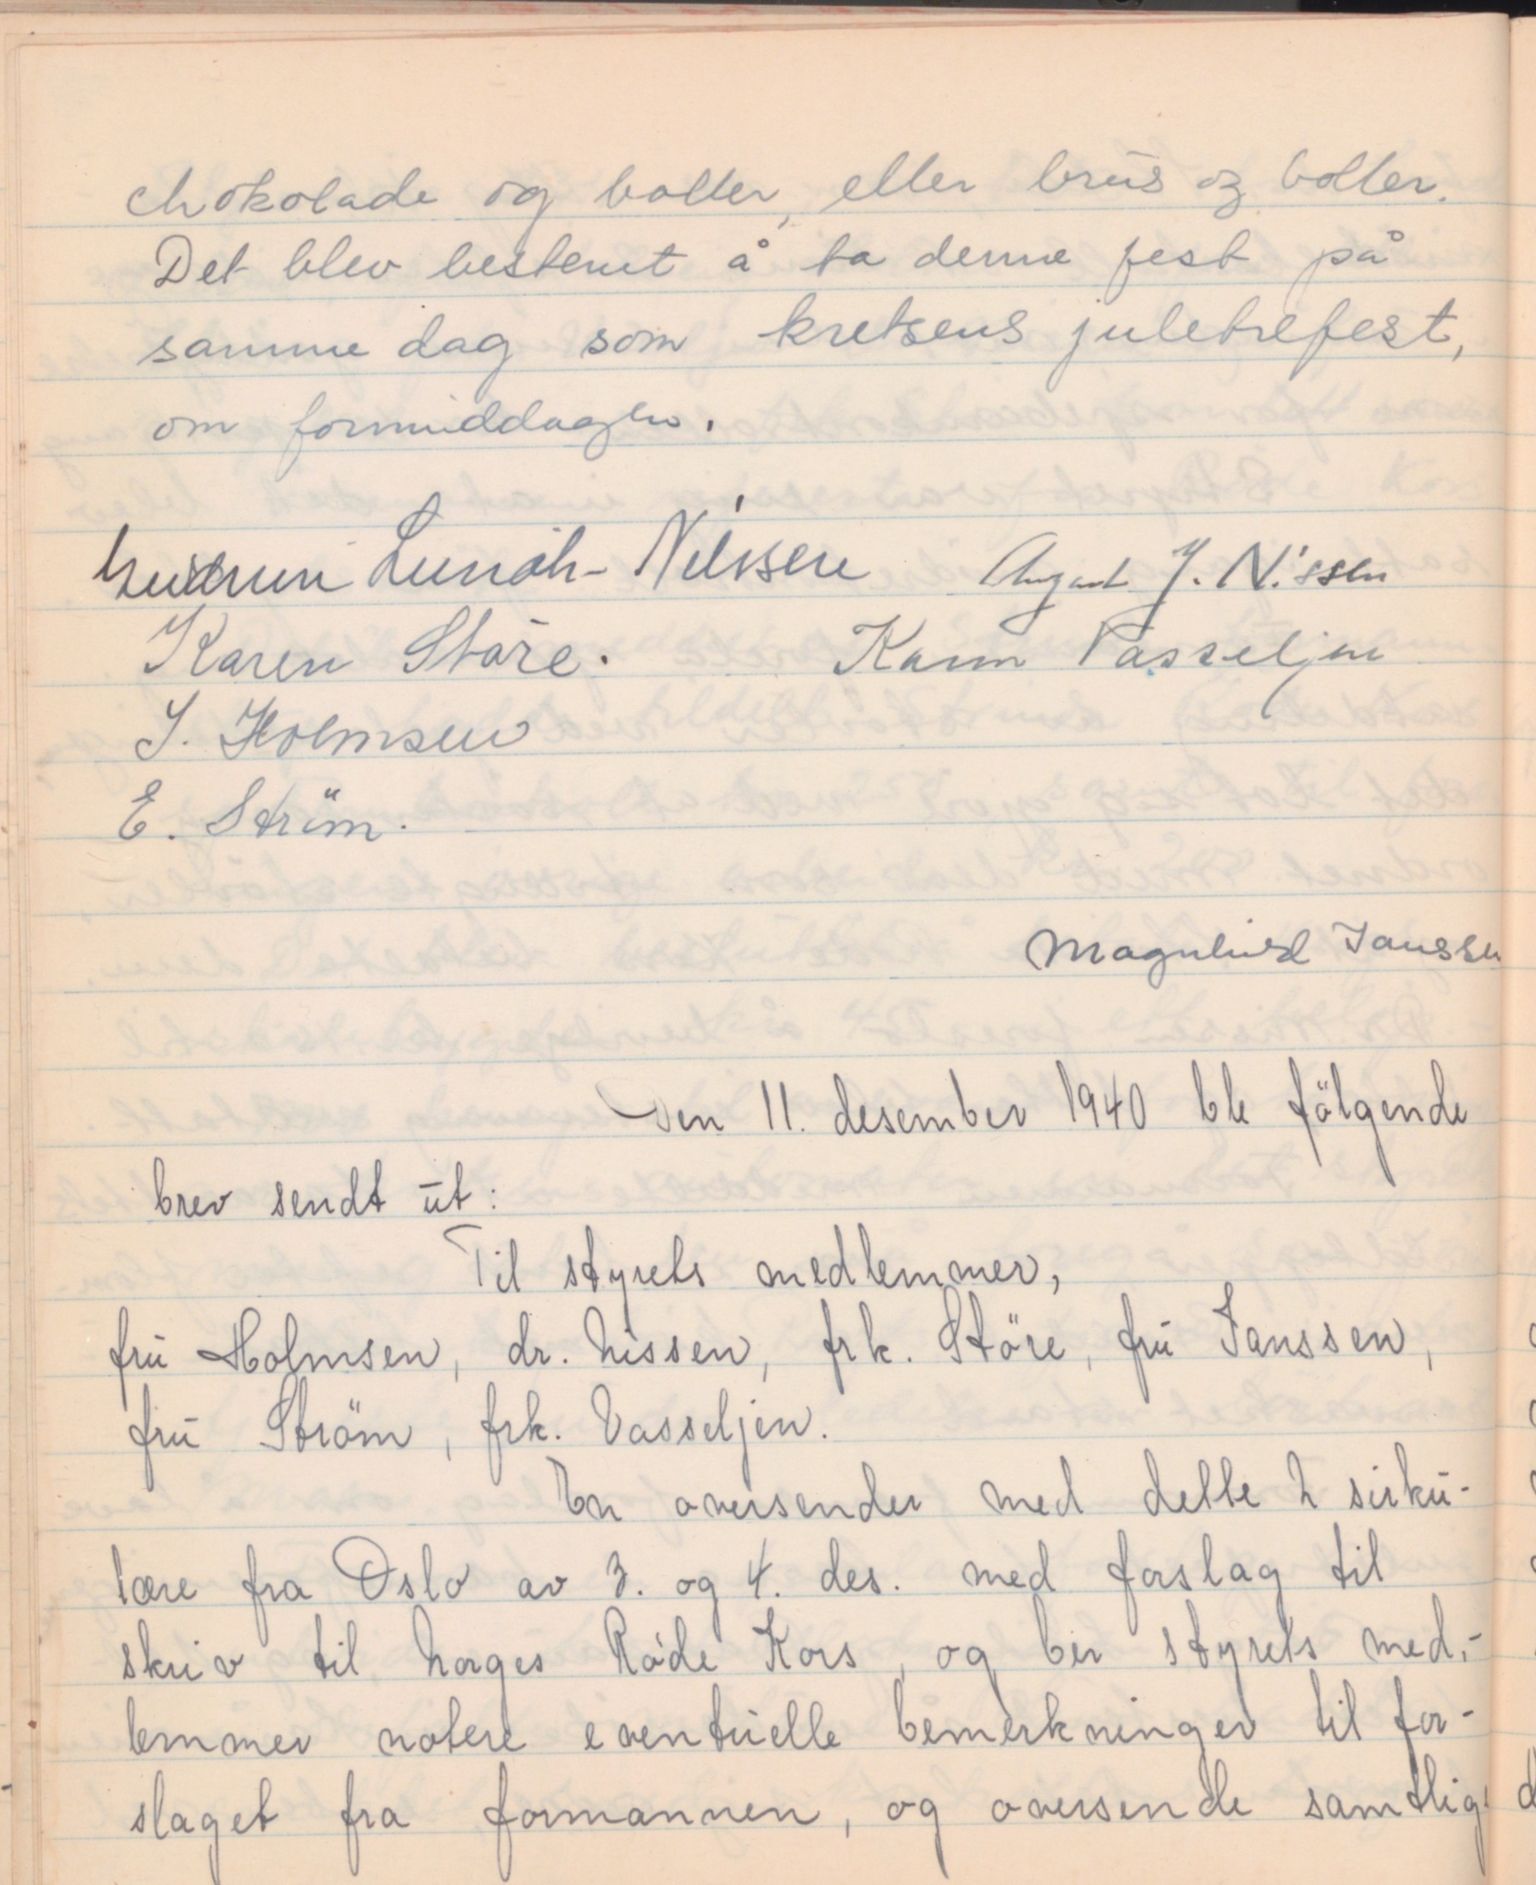 chokolade og boller, eller brus og boller.
Det blev bestemt å ta denne fest på
samme dag som kretsens juletrefest,
om formiddagen.
Gudrun Lunåh-Nilssen August J. Nissen
Karen Störe. Karin Vasseljen
J. Holmsen
E. Ström.
Magnhild Janssen
Den 11. desember 1940 ble fölgende
brev sendt ut:
Til styrets medlemmer,
fru Holmsen, dr. Nissen, frk. Störe, fru Janssen,
fru Ström, frk. Vasseljen.
En oversender med dette 2 sirku-
lære fra Oslo av 3. og 4. des. med forslag til
skriv til Norges Röde Kors, og ber styrets med-
lemmer notere eventuelle bemerkninger til for-
slaget fra formannen, og oversende samtlige